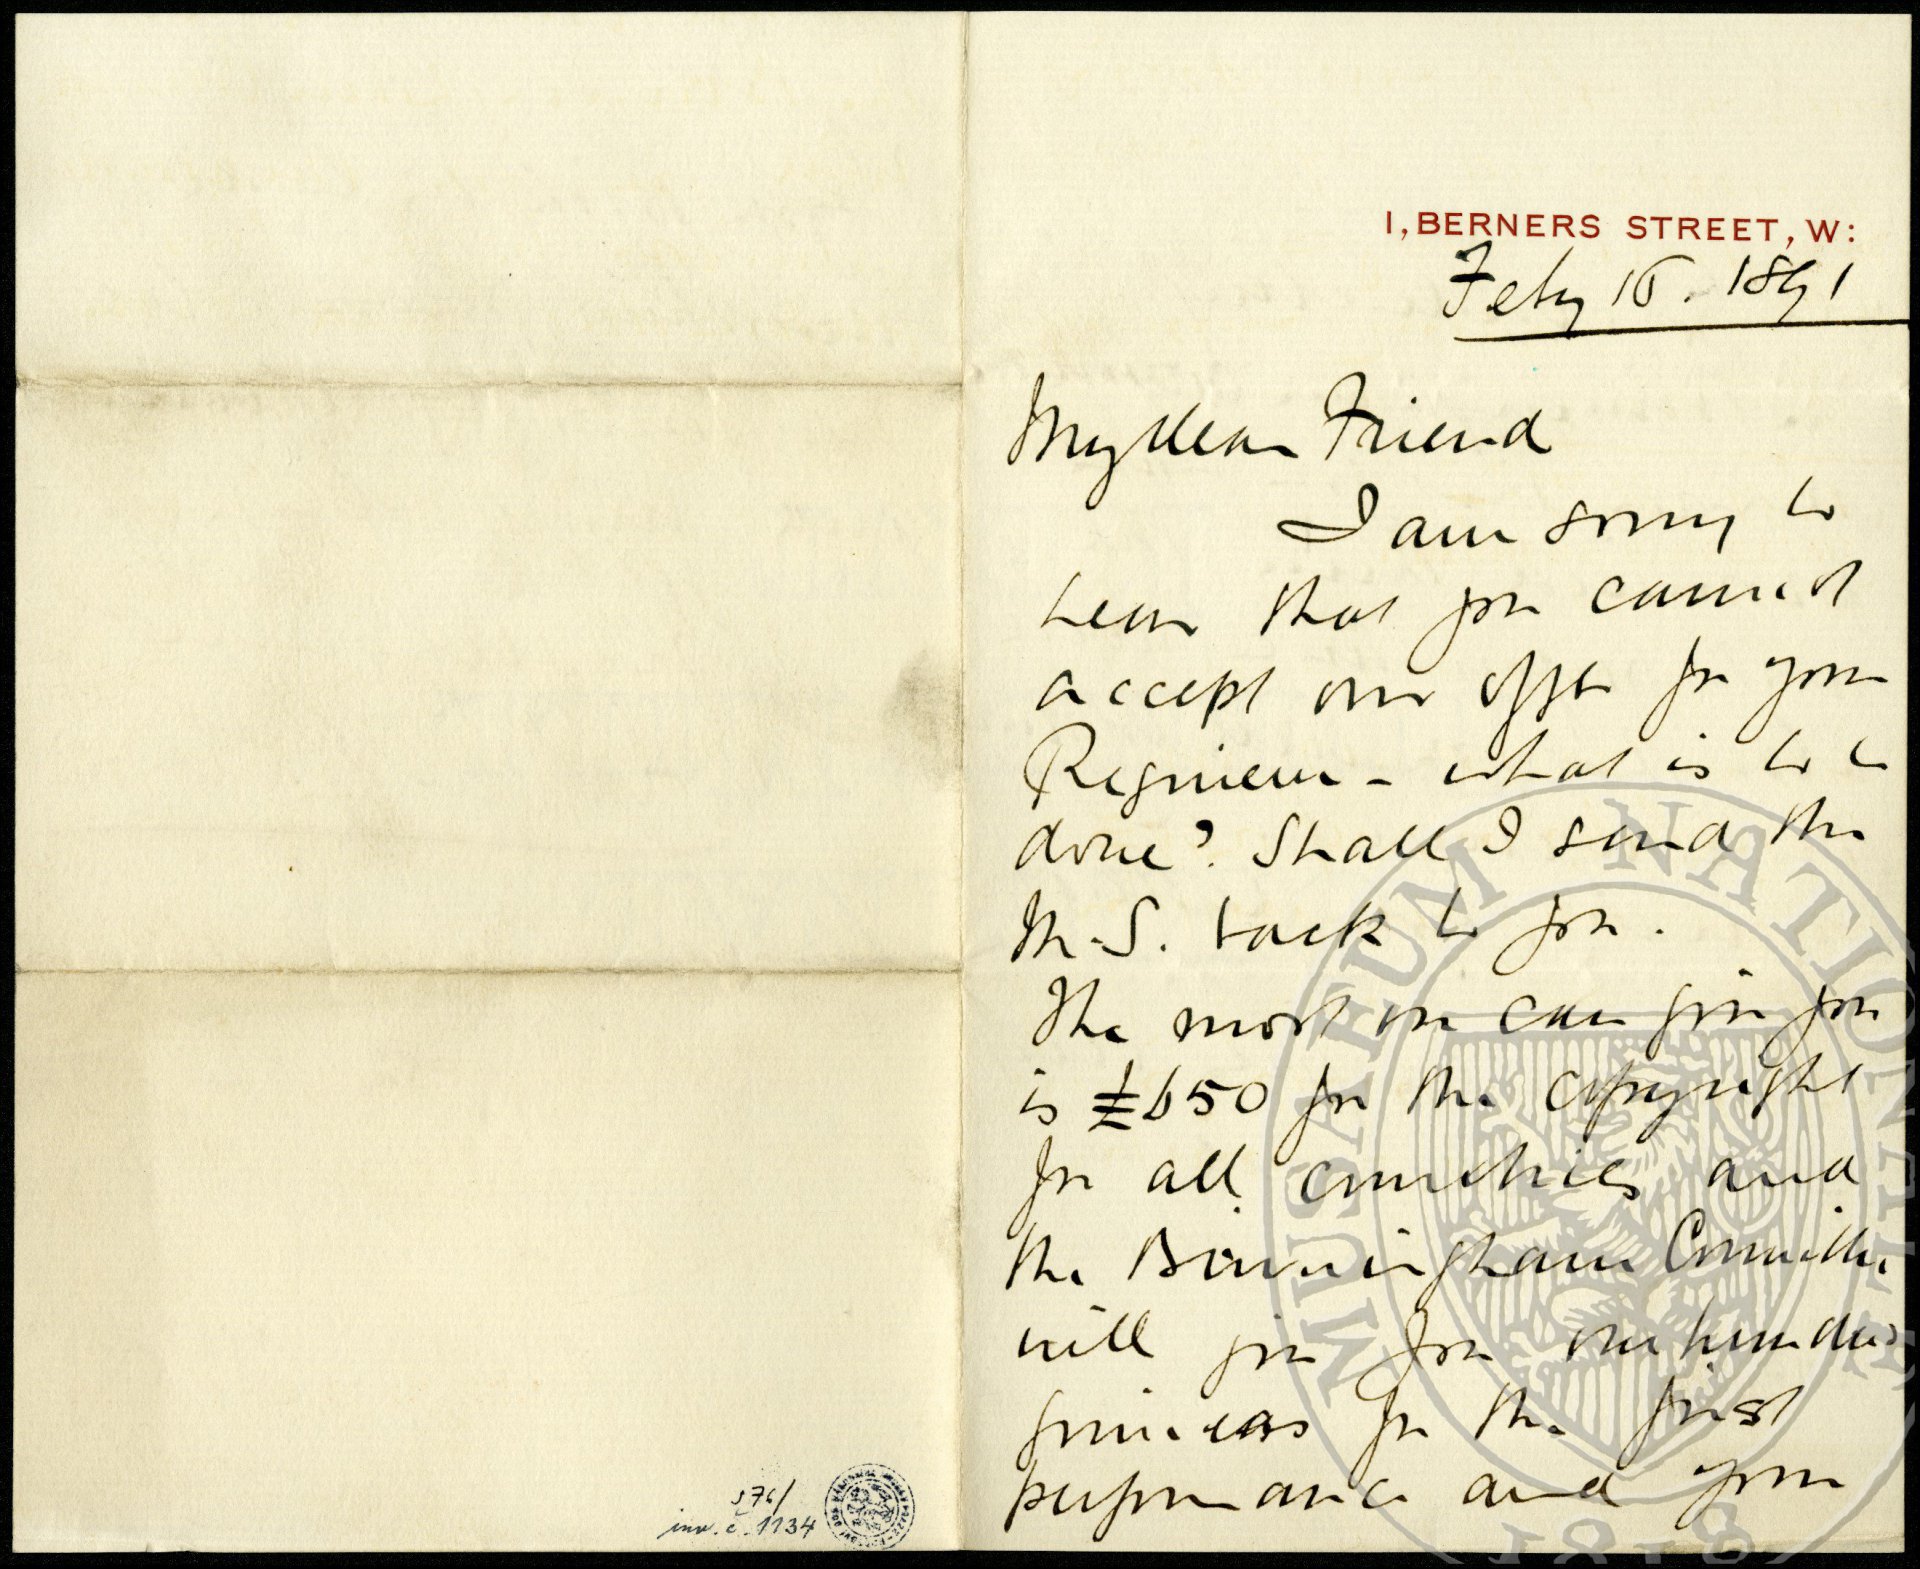 1, BERNERS STREET, W:
Feby 16. 1891
My dear Friend
I am sorry to
hear that you cannot
accept our offer for your
Requiem - what is to be
done? Shall I send the
M.S. back to you.
The most we can give you
is £650 for the copyright
for all countries and
the Birmingham Committee
will give you one hundred
guineas for the first
performance and your
576/
inv. č. 1134
MUSAEUM NATIONALE
1818